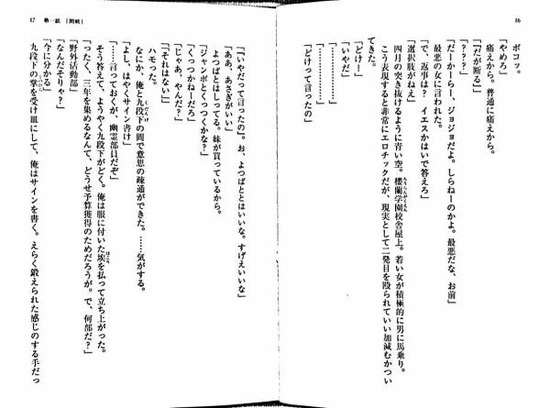 16
ボコッ。
「やめろ」
痛えから。普通に痛えから。
「だが断る」
最悪の女に言われた。
「だーかーらー、ジョジョだよ。しらねーのかよ。最悪だな、お前」
「で、返事は? イエスかはいで答えろ」
「選択肢がねぇ」
四月の突き抜けるように青い空。楼蘭学園校舎屋上。若い女が積極的に男に馬乗り。
こう表現すると非常にエロチックだが、現実として二発目を殴られていい加減むかつい
てきた。
「どけー」
「いやだ」
「…………」
「…………」
「どけって言ったの」
17 第一話 [開戦]
「いやだって言ったの」。お、よつばとはいいな。すげえいいな」
「ああ、あさぎがいい」
よつばとはしってる。妹が買っているから。
「ジャンボとくっつくかな?」
「くっつかねーだろ」
「じゃあ、やんだ?」
「それはない」
ハモった。
なにか、俺と九段下の間で意思の疎通ができた。……気がする。
「よし、はやくサイン書け」
「……言っておくが、幽霊部員だぞ」
そう答えて、ようやく九段下がどく。俺は服に付いた埃を払って立ち上がった。
「ったく、三年を集めるなんて、どうせ予算獲得のためだろうが。で、何部だ?」
「野外活動部」
「なんだそりゃ?」
「今に分かる」
九段下の掌を受け皿にして、俺はサインを書く。えらく鍛えられた感じのする手だっ